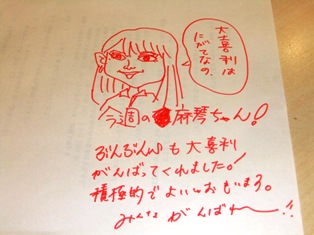 大喜利は
にがてなの。
今週の麻琴ちゃん!
ぶんぶんも大喜利
がんばってくれました!
積極的でよいとおもいまる。
みんながんばれー!!